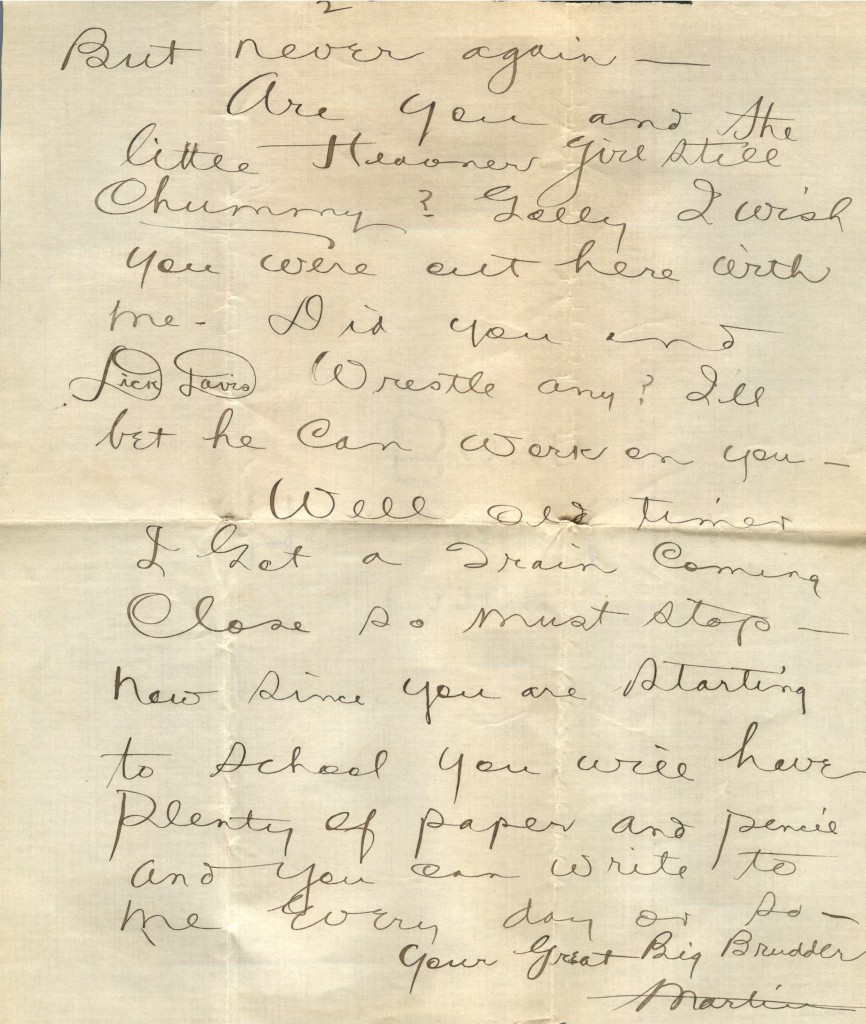 2
But never again —
Are you and the
little Heavner girl still
Chummy? Golly I wish
you were out here with
me - Did you and
Dick Davis Wrestle any? I'll
bet he Can work on you —
Well old timer
I Got a Train Coming
Close so must stop —
now since you are starting
to school you will have
Plenty of paper and pencil
and you can write to
me Every day or so —
Your Great Big Brudder
Martin